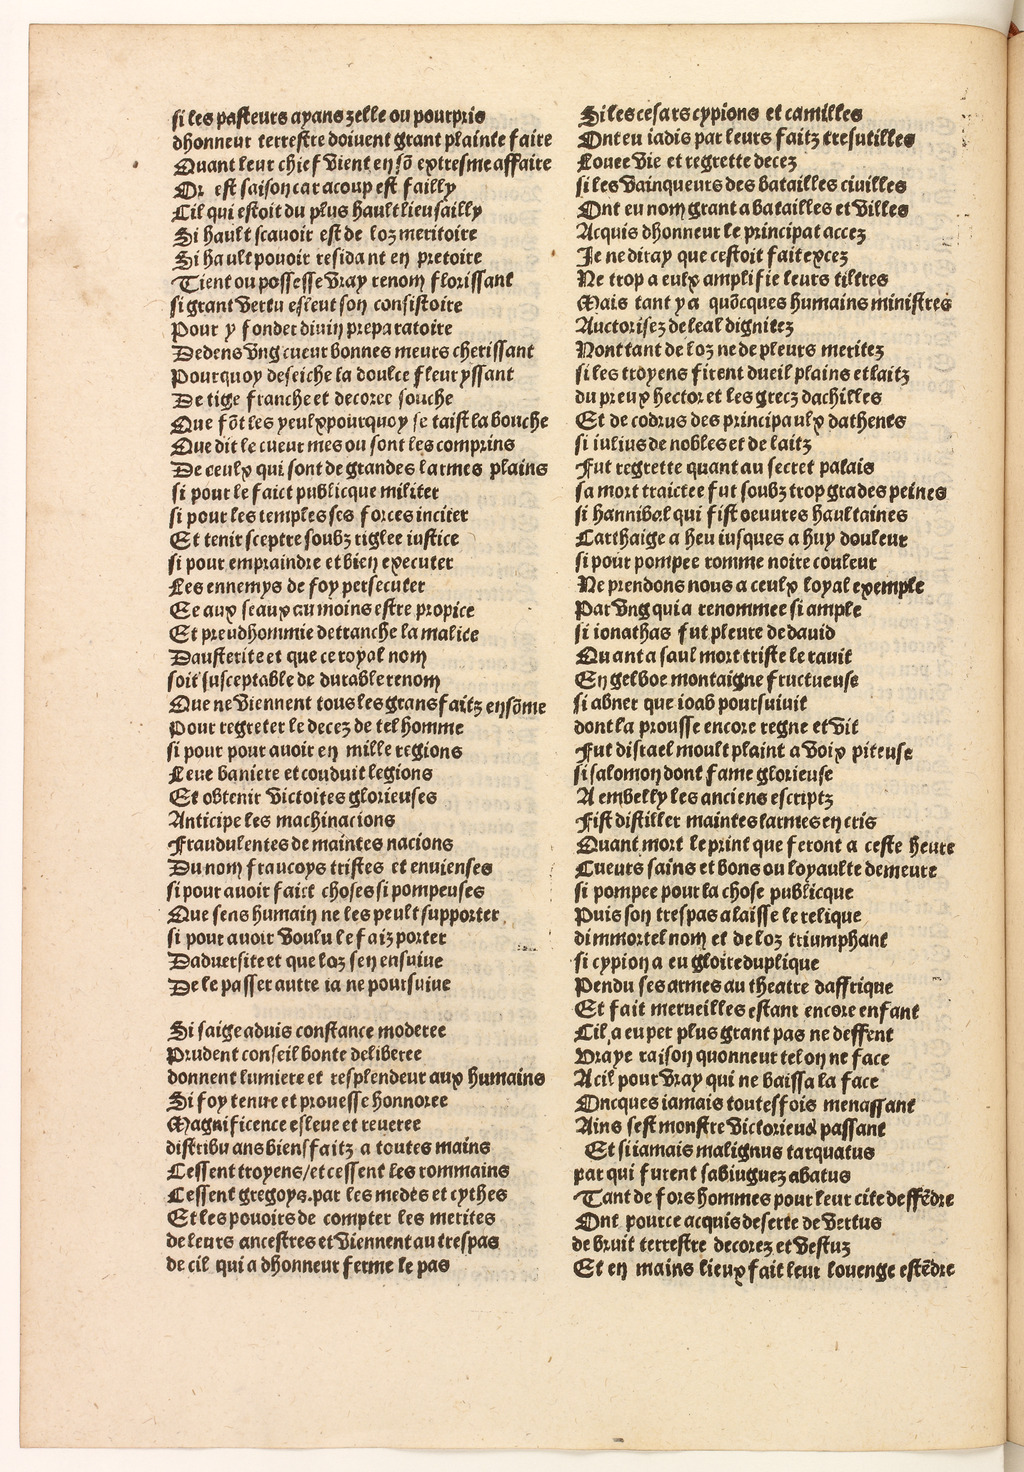 si les pasteurs ayans zelle ou pourpris
dhonneur terrestre doiuent grant plainte faire
Quant leur chief vient en sõ extresme affaire
Or est saison car a coup est failly
Cil qui estoit du plus hault lieu sailly
Si hault scauoir est de loz meritoire
Si hault pouoir residant en pretoire
Tient ou possesse vray renom florissant
si grant vertu esleut son consistoire
Pour y fonder diuin preparatoire
Dedens vng cueur bonnes meurs cherissant
Pourquoy deseiche la doulce fleur yssant
De tige franche et decoree souche
Que fõt les yeulx pourquoy se taist la bouche
Que dit le cueur mes ou sont les comprins
De ceulx qui sont de grandes larmes plains
si pour le faict publicque militer
si pour les temples ses forces inciter
Et tenir sceptre soubz riglee iustice
si pour empraindre et bien executer
Les ennemys de foy persecuter
Ee aux seaux au moins estre propice
Et preudhommie detranche la malice
Dausterite et que ce royal nom
soit susceptable de durable renom
Que ne viennent tous les grans faitz en sõme
Pour regreter le decez de tel homme
si pour pour auoir en mille regions
Leue baniere et couduit legions
Et obtenir victoires glorieuses
Anticipe les machinacions
Fraudulentes de maintes nacions
Du nom fraucoys tristes et enuienses
si pour auoir faict choses si pompeuses
Que sens humain ne les peult supporter
si pour auoir voulu le faiz porter
Daduersite et que loz sen ensuiue
De le passer autre ia ne poursuiue
Si saige aduis constance moderee
Prudent conseil bonte deliberee
donnent lumiere et resplendeur aux humains
Si foy tenue et prouesse honnoree
Magnificence esleue et reueree
distribu ans biensfaitz a toutes mains
Cessent troyens/et cessent les rommains
Cessent gregoys.par les medes et cythes
Et les pouoirs de compter les merites
de leurs ancestres et viennent au trespas
de cil qui a dhonneur ferme le pas
Si les cesars cypions et camilles
Ont eu iadis par leurs faitz tresutilles
Louee vie et regrette decez
si les vainqueurs des batailles ciuilles
Ont eu nom grant a batailles et villes
Acquis dhonneur le principat accez
Je ne diray que cestoit fait excez
Ne trop a eulx amplifie leurs tiltres
Mais tant y a quõcques humains ministres
Auctorisez de leal dignitez
Nont tant de loz ne de pleurs meritez
si les troyens firent dueil plains et laitz
du preux hector et les grecz dachilles
Et de codrus des principaulx dathenes
si iulius de nobles et de laitz
Fut regrette quant au secret palais
sa mort traictee fut soubz trop grades peines
si hannibal qui fist oeuures haultaines
Carthaige a heu iusques a huy douleur
si pour pompee romme noire couleur
Ne prendons nous a ceulx loyal exemple
Par vng qui a renommee si ample
si ionathas fut pleure de dauid
Quant a saul mort triste le rauit
En gelboe montaigne fructueuse
si abner que ioab poursuiuit
dont la prousse encore regne et vit
Fut disrael moult plaint a voix piteuse
si salomon dont fame glorieuse
A embelly les anciens escriptz
Fist distiller maintes larmes en cris
Quant mort le print que feront a ceste heure
Cueurs sains et bons ou loyaulte demeure
si pompee pour la chose publicque
Puis son trespas a laisse le relique
dimmortel nom et de loz triumphant
si cypion a eu gloire duplique
Pendu ses armes au theatre daffrique
Et fait merueilles estant encore enfant
Cil a eu per plus grant pas ne deffent
Vraye raison quonneur tel on ne face
A cil pour vray qui ne baissa la face
Oncques iamais toutesfois menassant
Ains sest monstre victorieux passant
Et si iamais malignus tarquatus
par qui furent sabiuguez abatus
Tant de fors hommes pour leur cite deffẽdre
Ont pource acquis deserte de vertus
de bruit terrestre decorez et vestuz
Et en mains lieux fait leur louenge estẽdre